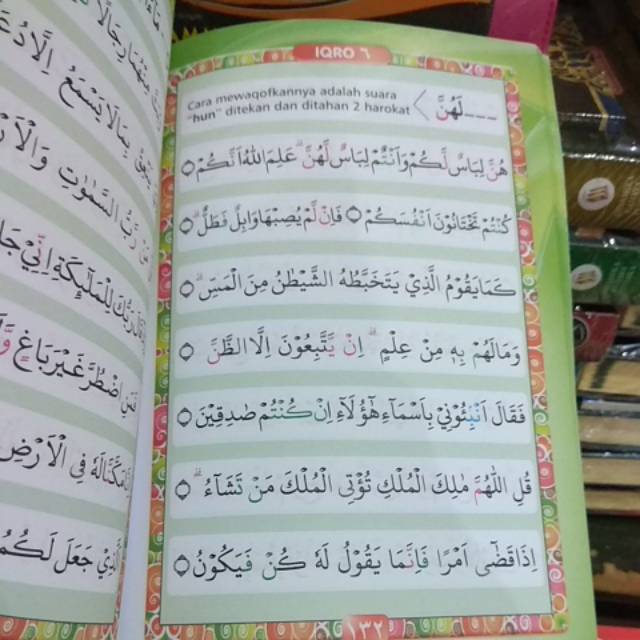 IQRO ٦
Cara mewaqofkannya adalah suara
"hun" ditekan dan ditahan 2 harokat
لَهُنَّ
هُنَّ لِبَاسٌ لَّكُمْ وَاَنْتُمْ لِبَاسٌ لَّهُنَّ ۗ عَلِمَ اللّٰهُ اَنَّكُمْ ۝
كُنْتُمْ تَخْتَانُوْنَ اَنْفُسَكُمْ ۝ فَاِنْ لَّمْ يُصِبْهَا وَابِلٌ فَطَلٌّ ۗ ۝
كَمَا يَقُوْمُ الَّذِيْ يَتَخَبَّطُهُ الشَّيْطٰنُ مِنَ الْمَسِّ ۗ ۝
وَمَا لَهُمْ بِهٖ مِنْ عِلْمٍ ۗ اِنْ يَّتَّبِعُوْنَ اِلَّا الظَّنَّ ۝
فَقَالَ اَنْۢبِـُٔوْنِيْ بِاَسْمَاۤءِ هٰٓؤُلَاۤءِ اِنْ كُنْتُمْ صٰدِقِيْنَ ۝
قُلِ اللّٰهُمَّ مٰلِكَ الْمُلْكِ تُؤْتِى الْمُلْكَ مَنْ تَشَاۤءُ ۗ ۝
اِذَا قَضٰٓى اَمْرًا فَاِنَّمَا يَقُوْلُ لَهٗ كُنْ فَيَكُوْنُ ۝
اِلَّا دُعَ
بِمَا لَا يَسْمَعُ
رَبُّ السَّمٰوٰتِ وَالْاَرْ
رَبُّكَ لِلْمَلٰۤىِٕكَةِ اِنِّيْ جَا
اضْطُرَّ غَيْرَ بَاغٍ
مَكَّنَّا لَهٗ فِى الْاَرْضِ
جَعَلَ لَكُمُ
١٣٢